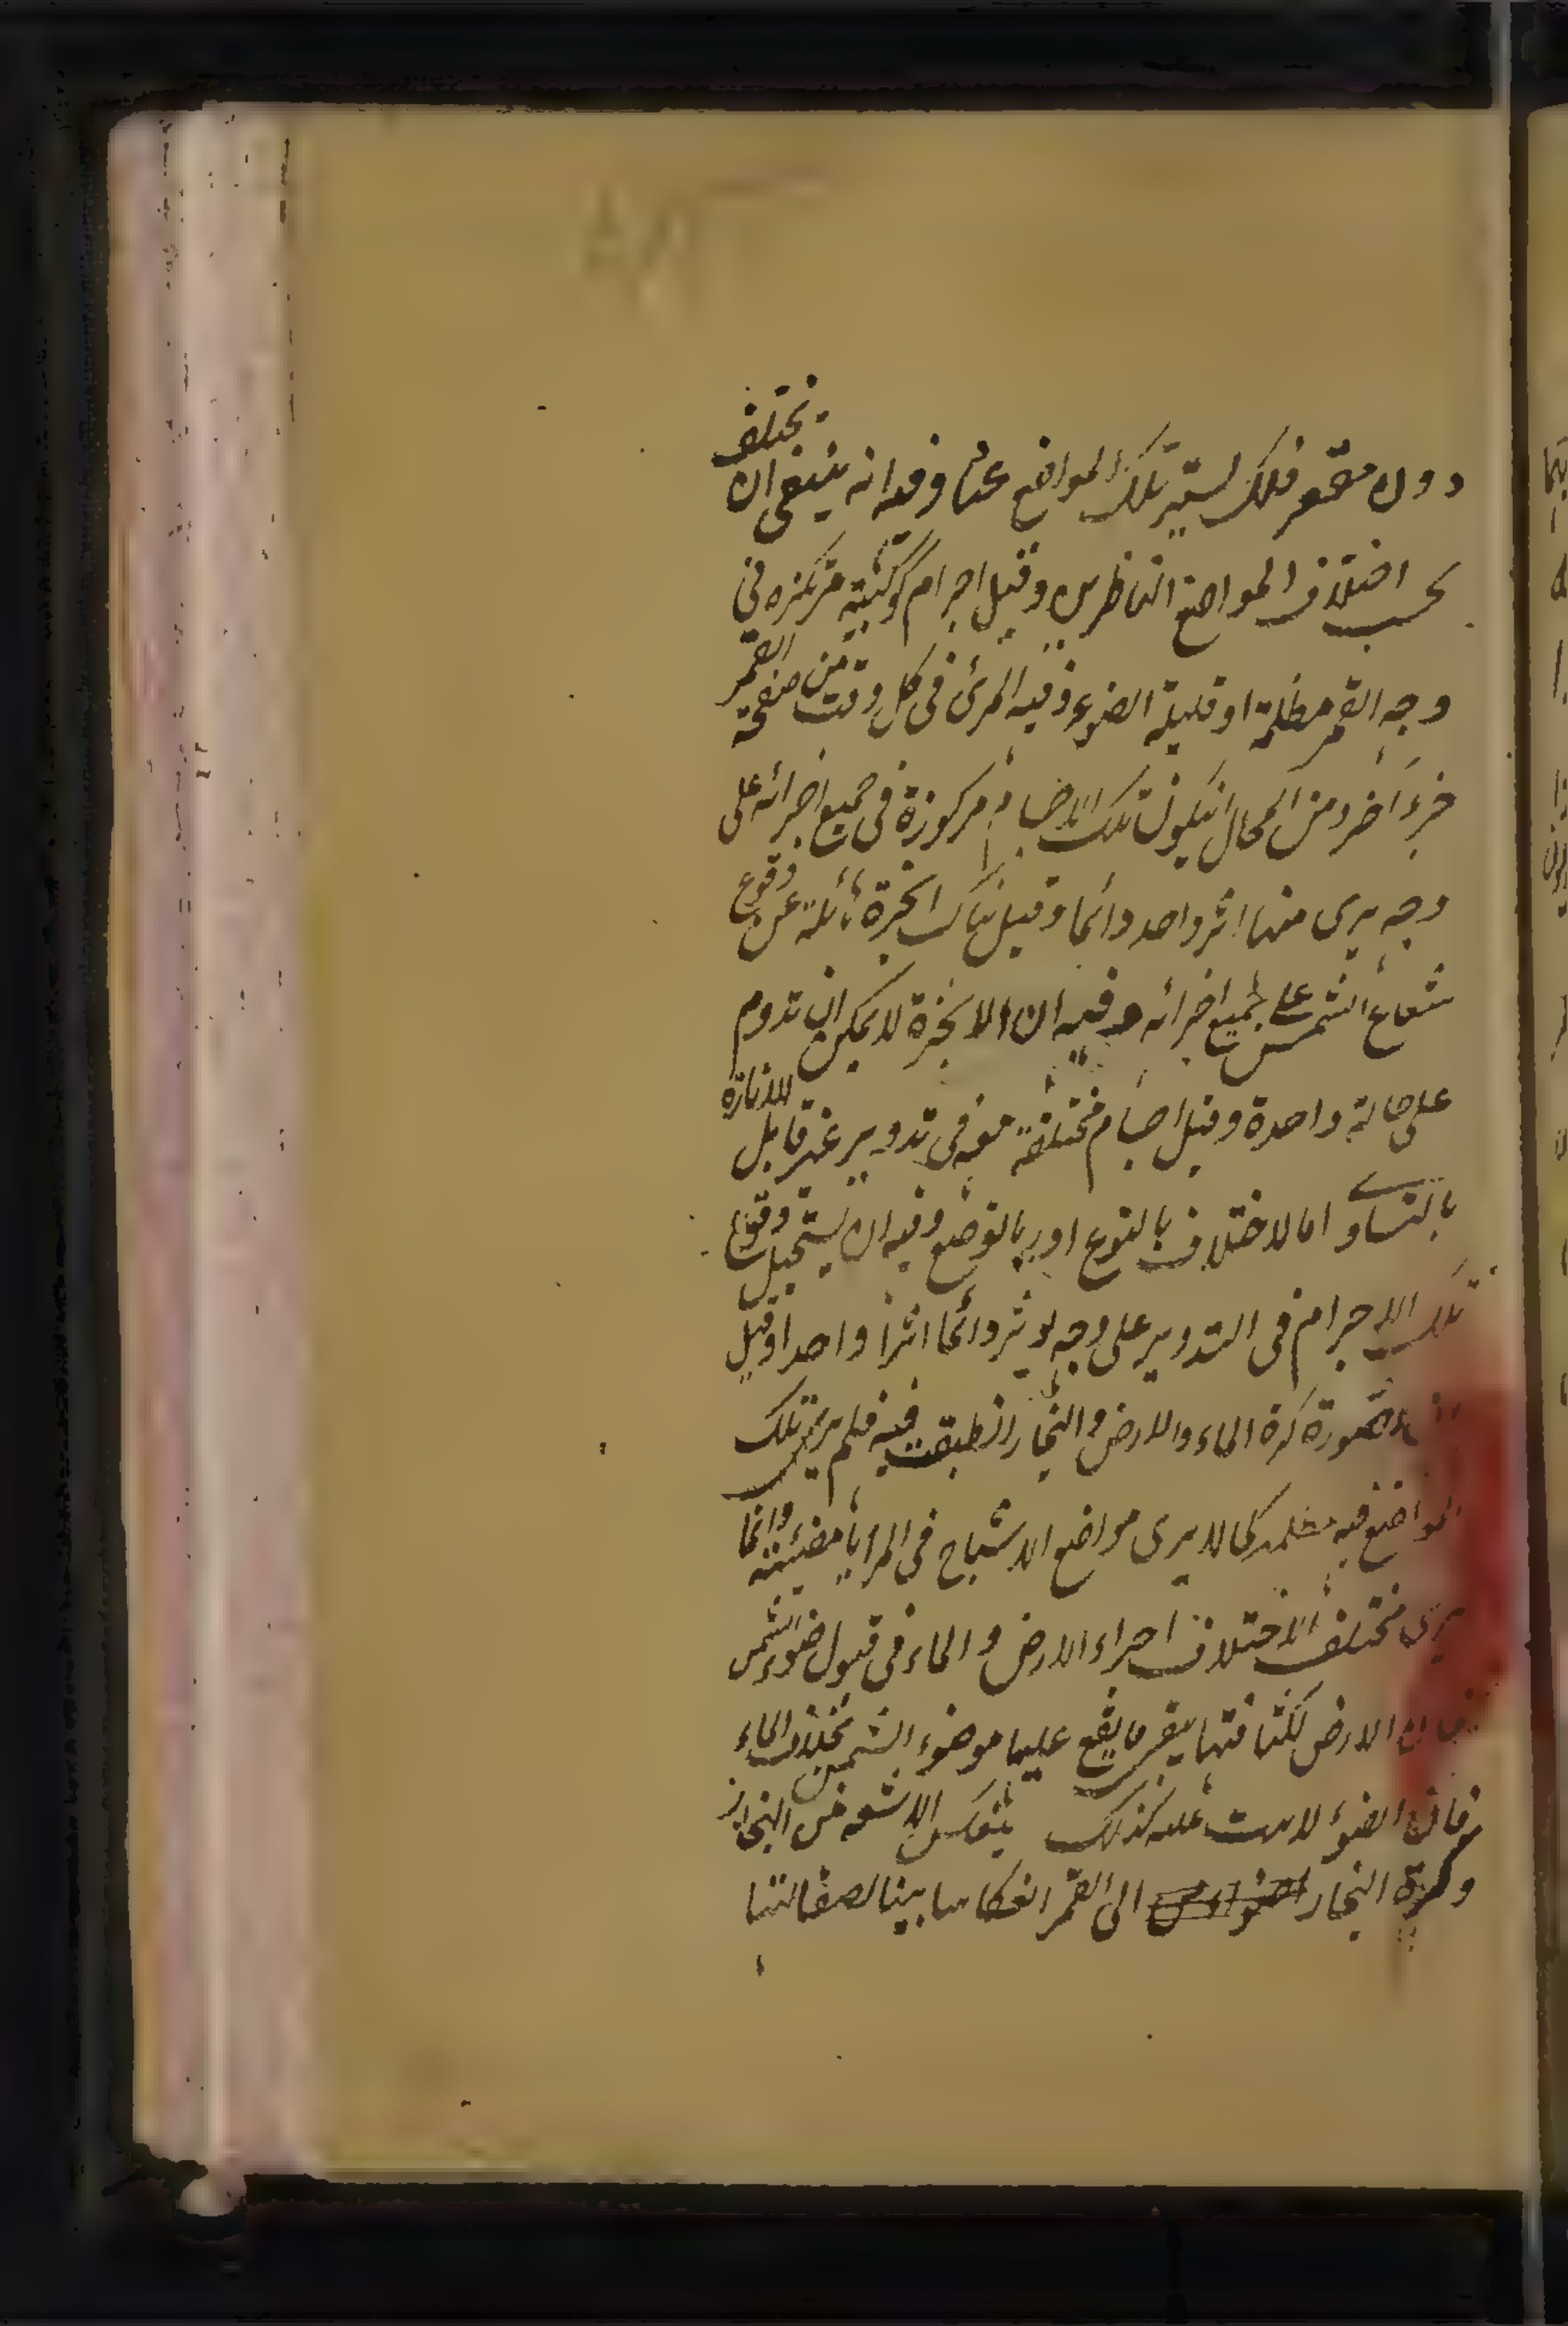 دون مقعر فلك يستر تلك المواضع عنا وفيه انه ينبغى ان يختلف
بحسب اختلاف المواضع الناظرين وقيل اجرام كوكبية مرتكزة فى
وجه القمر مظلمة او قليلة الضوء وفيه المرئ فى كل وقت من صفحة القمر
جزء آخر ومن المحال انيكون تلك الاجسام مركوزة فى جميع اجزائه على
وجه يرى منها اثر واحد دائما وقيل هناك ابخرة مائلة عن وقوع
شعاع الشمس على جميع اجزائه وفيه ان الابخرة لا يمكن ان تدوم
على حالة واحدة وقيل اجسام مختلفة معه فى تدوير غير قابل للانارة
بالتساوى اما لاختلاف بالنوع او بالوضع وفيه ان يستحيل وقوع
تلك الاجرام فى التدوير على وجه يؤثر دائما اثرا واحدا وقيل
صورة كرة الماء والارض والبخار انطبقت فيه فلم ير تلك
المواضع فيه مظلمه كما لا يرى مواضع الاشباح فى المرايا مضيئة وانما
يرى مختلفا لاختلاف اجراء الارض والماء فى قبول ضوء الشمس
فان الارض لكثافتها يقر ما يقع عليها من ضوء الشمس بخلاف الماء
فان الضوء لا يثبت عليه كذلك ينعكس الاشعه من البخار
وكرة البخار الى القمر انعكاسا بينا لصقالتها